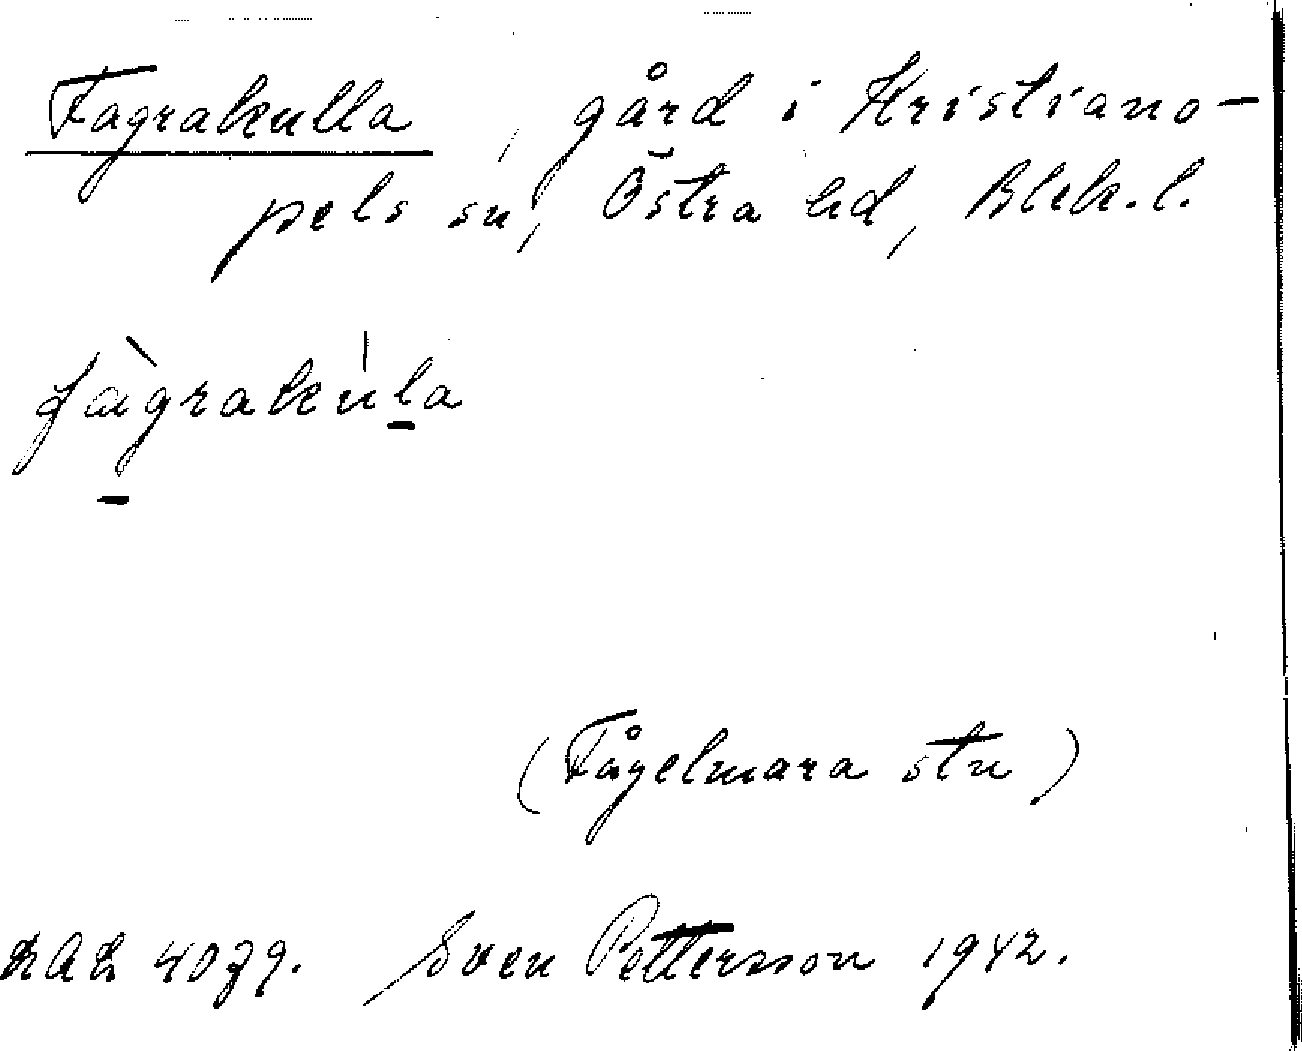 Fagrakulla, gård i Kristiano-
pels sn, Östra hd, Blek. l.
fàgrakùla
(Fågelmara stn)
4079. Sven Pettersson 1942.